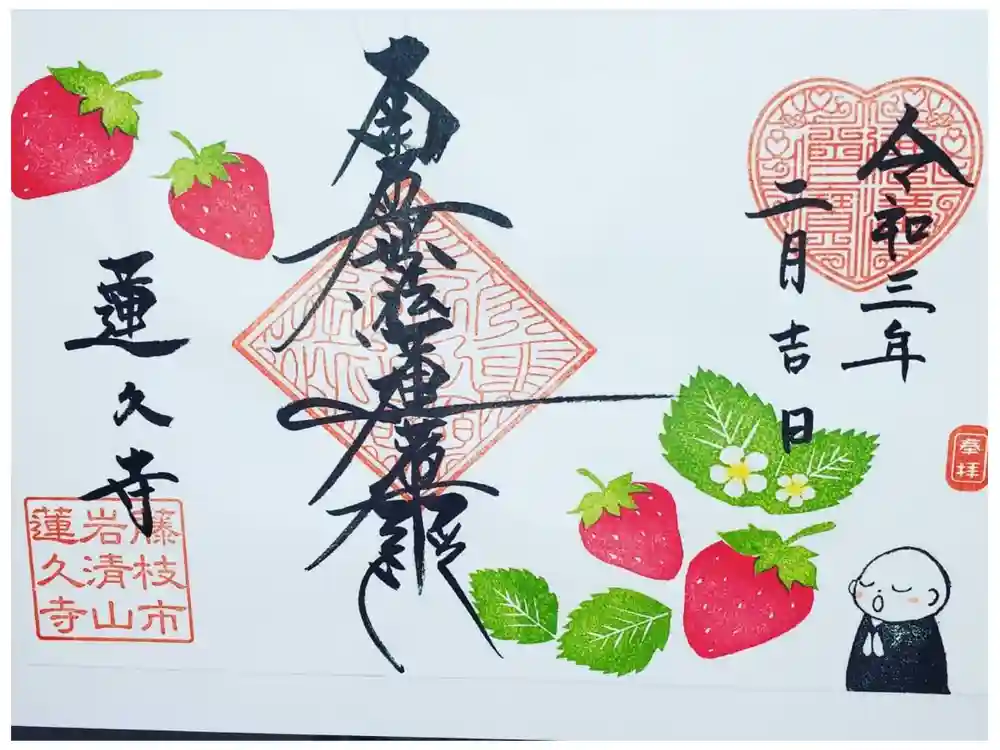 奉拝
令和三年
二月吉日
南無妙法蓮華経
蓮久寺
藤枝市
岩清山
蓮久寺